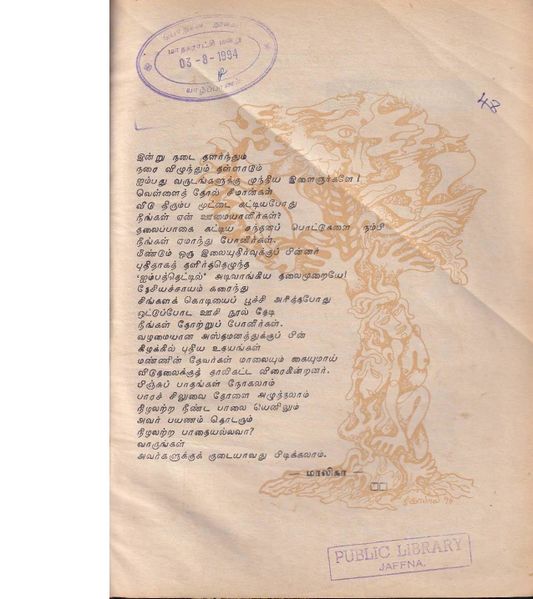 பொதுசன நூலகம்
மாநகராட்சி மன்று
03-8-1994
யாழ்ப்பாணம்
48
இன்று நடை தளர்ந்தும்
நரை விழுந்தும் தள்ளாடும்
ஐம்பது வருடங்களுக்கு முந்திய இளைஞர்களே!
வெள்ளைத் தோல் சீமான்கள்
வீடு திரும்ப மூட்டை கட்டியபோது
நீங்கள் ஏன் ஊமையானீர்கள்?
தலைப்பாகை கட்டிய சந்தனப் பொட்டுகளை நம்பி
நீங்கள் ஏமாந்து போனீர்கள்.
மீண்டும் ஒரு இலையுதிர்வுக்குப் பின்னர்
புதிதாகத் தளிர்த்தெழுந்த
'ஐம்பத்தெட்டில்' அடிவாங்கிய தலைமுறையே!
தேசியச்சாயம் கரைந்து
சிங்களக் கொடியைப் பூச்சி அரித்தபோது
ஒட்டுப்போட ஊசி நூல் தேடி
நீங்கள் தோற்றுப் போனீர்கள்.
வழமையான அஸ்தமனத்துக்குப் பின்
கிழக்கில் புதிய உதயங்கள்
மண்ணின் தேவர்கள் மாலையும் கையுமாய்
விடுதலைக்குத் தாலிகட்ட விரைகின்றனர்.
பிஞ்சுப் பாதங்கள் நோகலாம்
பாரச் சிலுவை தோளை அழுந்தலாம்
நிழலற்ற நீண்ட பாலை யெனிலும்
அவர் பயணம் தொடரும்
நிழலற்ற பாதையல்லவா?
வாருங்கள்
அவர்களுக்குக் குடையாவது பிடிக்கலாம்.
— மாலிகா —
PUBLIC LIBRARY
JAFFNA.